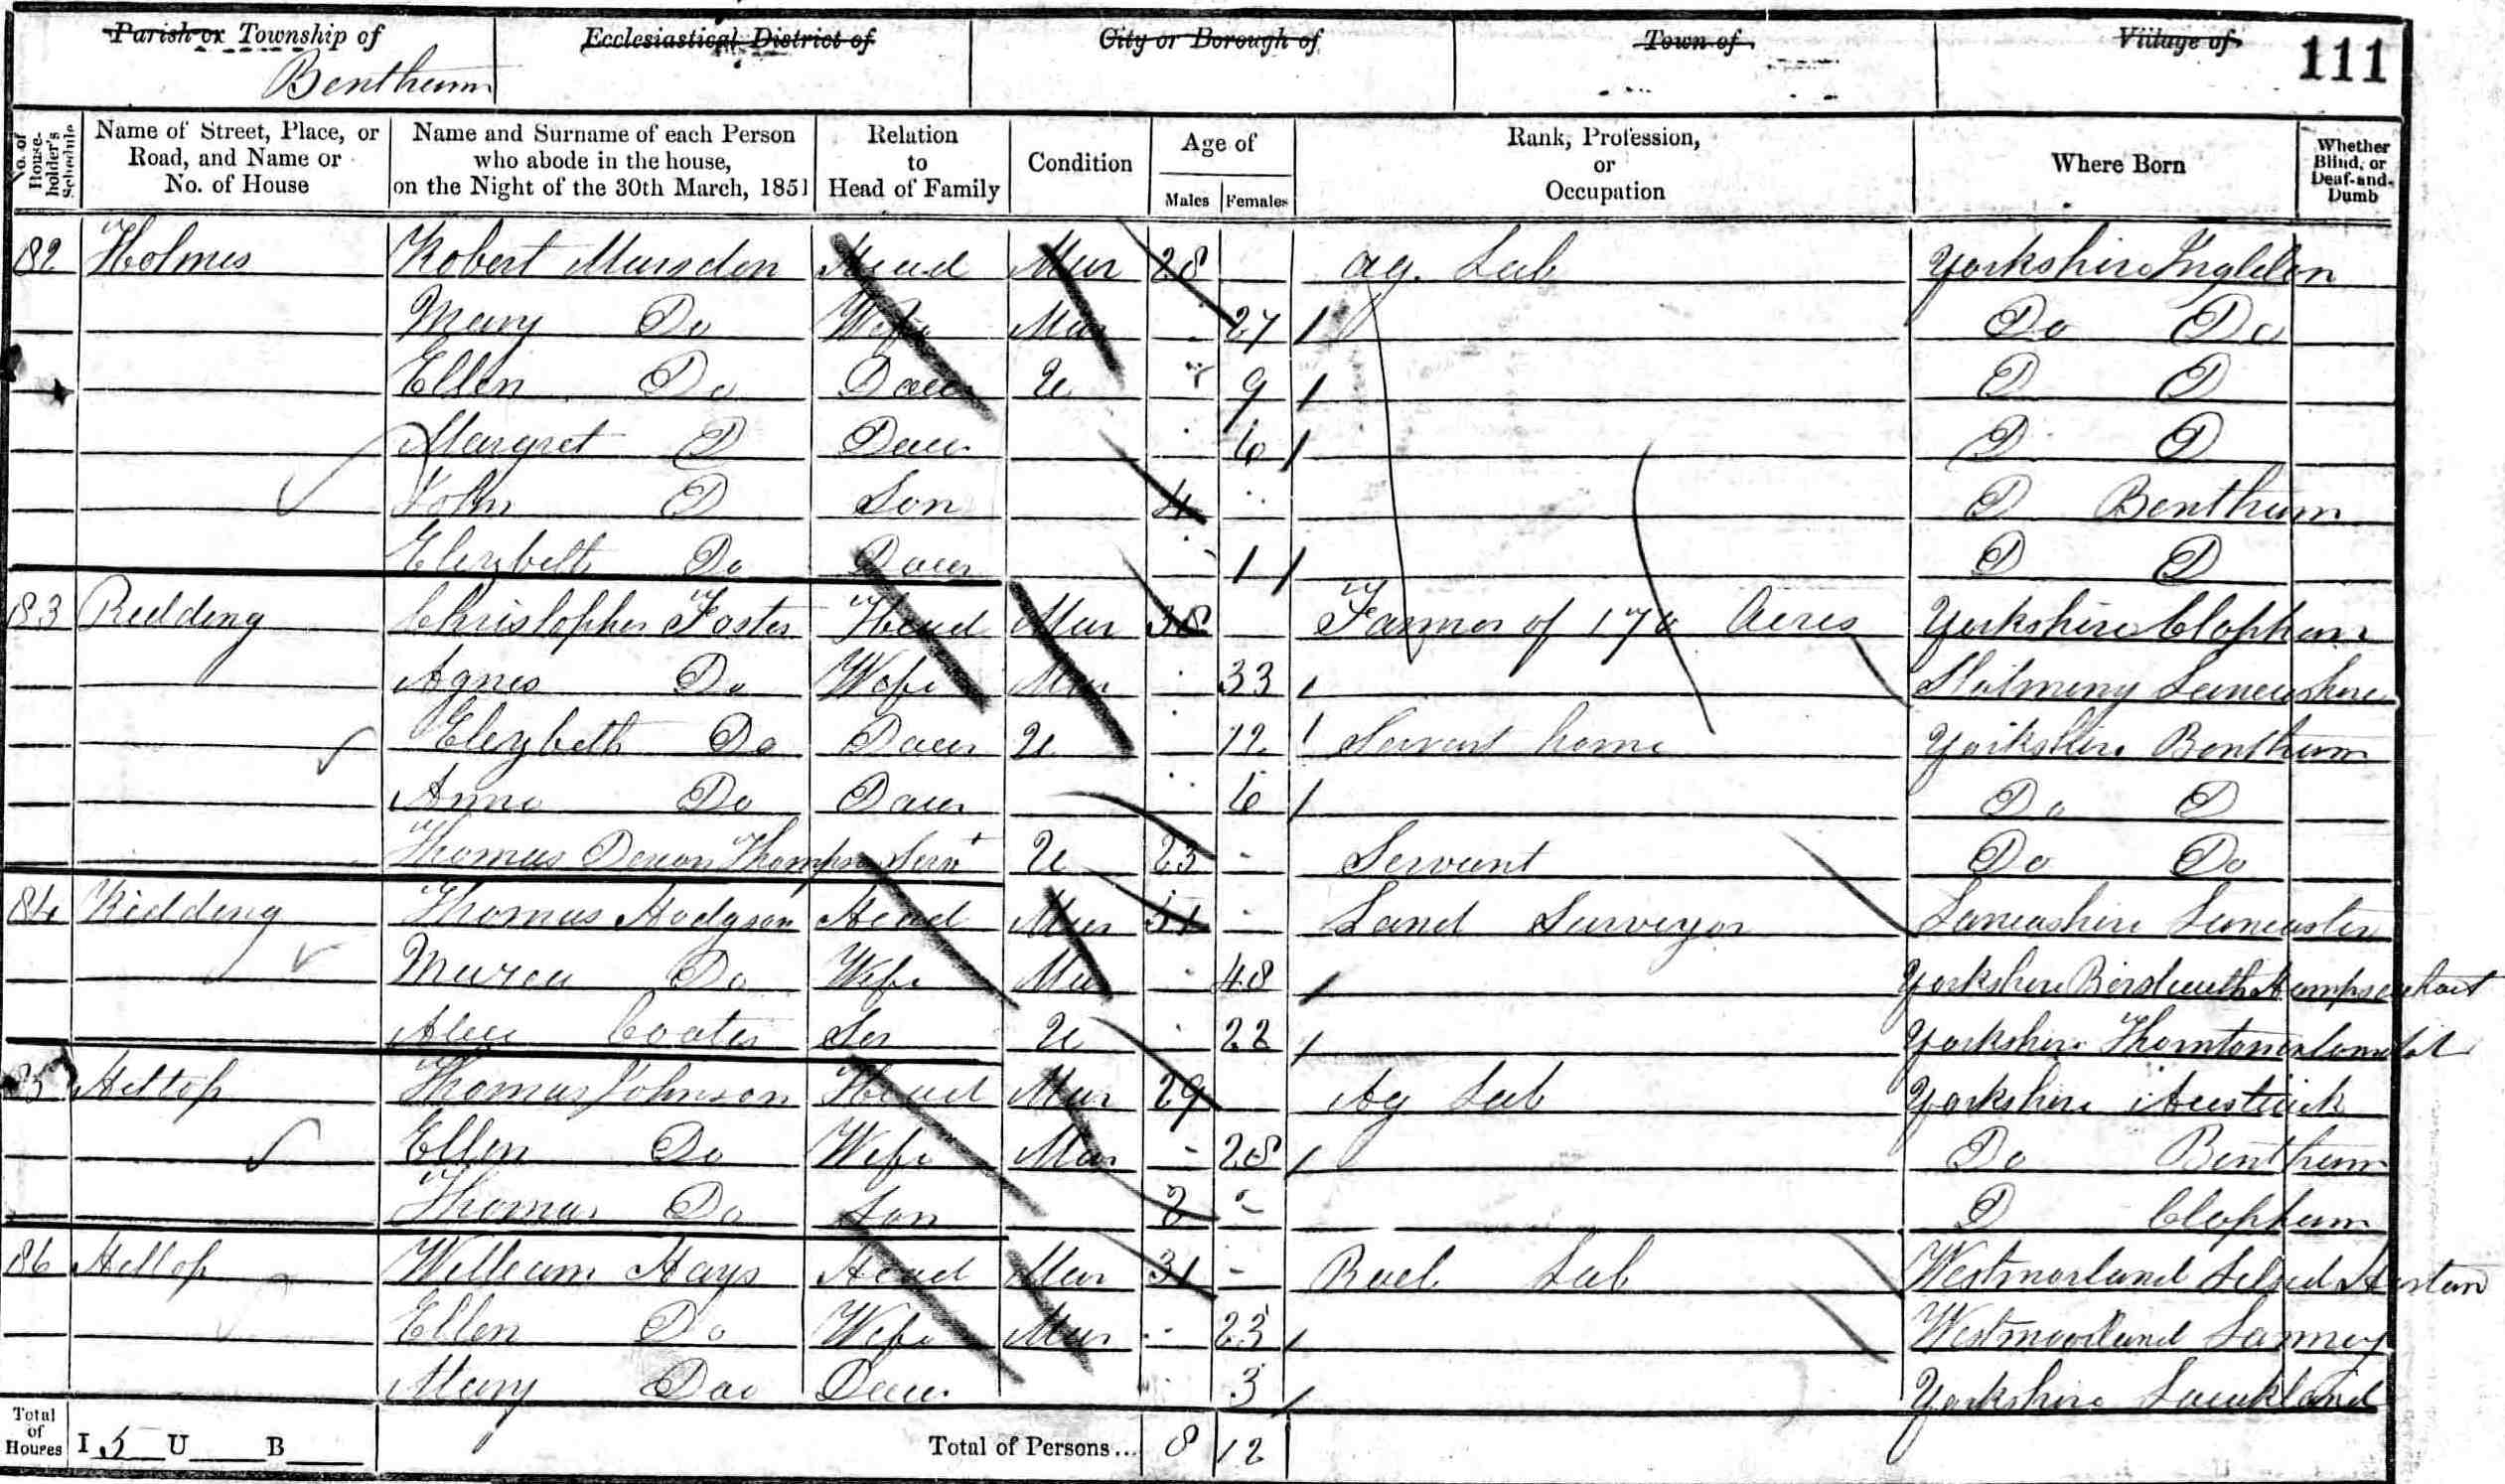 Parish or Township of Ecclesiastical District of City or Borough of Town of Village of 111
Bentham
No. of House-holder's Schedule
Name of Street, Place, or Road, and Name or No. of House
Name and Surname of each Person who abode in the house, on the Night of the 30th March, 1851
Relation to Head of Family
Condition
Age of
Males Females
Rank, Profession, or Occupation
Where Born
Whether Blind, or Deaf-and-Dumb
82 Holmes Robert Marsden Head Mar 28 ag. Lab Yorkshire Ingleton
Mary Do Wife Mar 27 Do Do
Ellen Do Daur U 9 D D
Margret D Daur 6 D D
John D Son 4 D Bentham
Elezbeth Do Daur 1 D D
83 Ridding Christopher Foster Head Mar 38 Farmer of 170 Acres Yorkshire Clapham
Agnes Do Wife Mar 33 Lancashire
Elezbeth Do Daur U 12 Servant home Yorkshire Bentham
Anne Do Daur 6 Do D
Thomas Thompson Servt U 23 Servant Do Do
84 Ridding Thomas Hodgson Head Mar 51 Land Surveyor Lancashire Lancaster
Do Wife Mar 48 Yorkshire
Alice Coates Ser U 22 Yorkshire Thorntoninlonsdal
85 Hiltop Thomas Johnson Head Mar 29 Ag Lab Yorkshire Austwick
Ellen Do Wife Mar 28 Do Bentham
Thomas Do Son 2 D Clapham
86 Hiltop William Hays Head Mar 31 Lab Westmorland
Ellen Do Wife Mar 23 Westmorland
Mary Dao Daur 3 Yorkshire
Total of Houses I 5 U B Total of Persons... 8 12